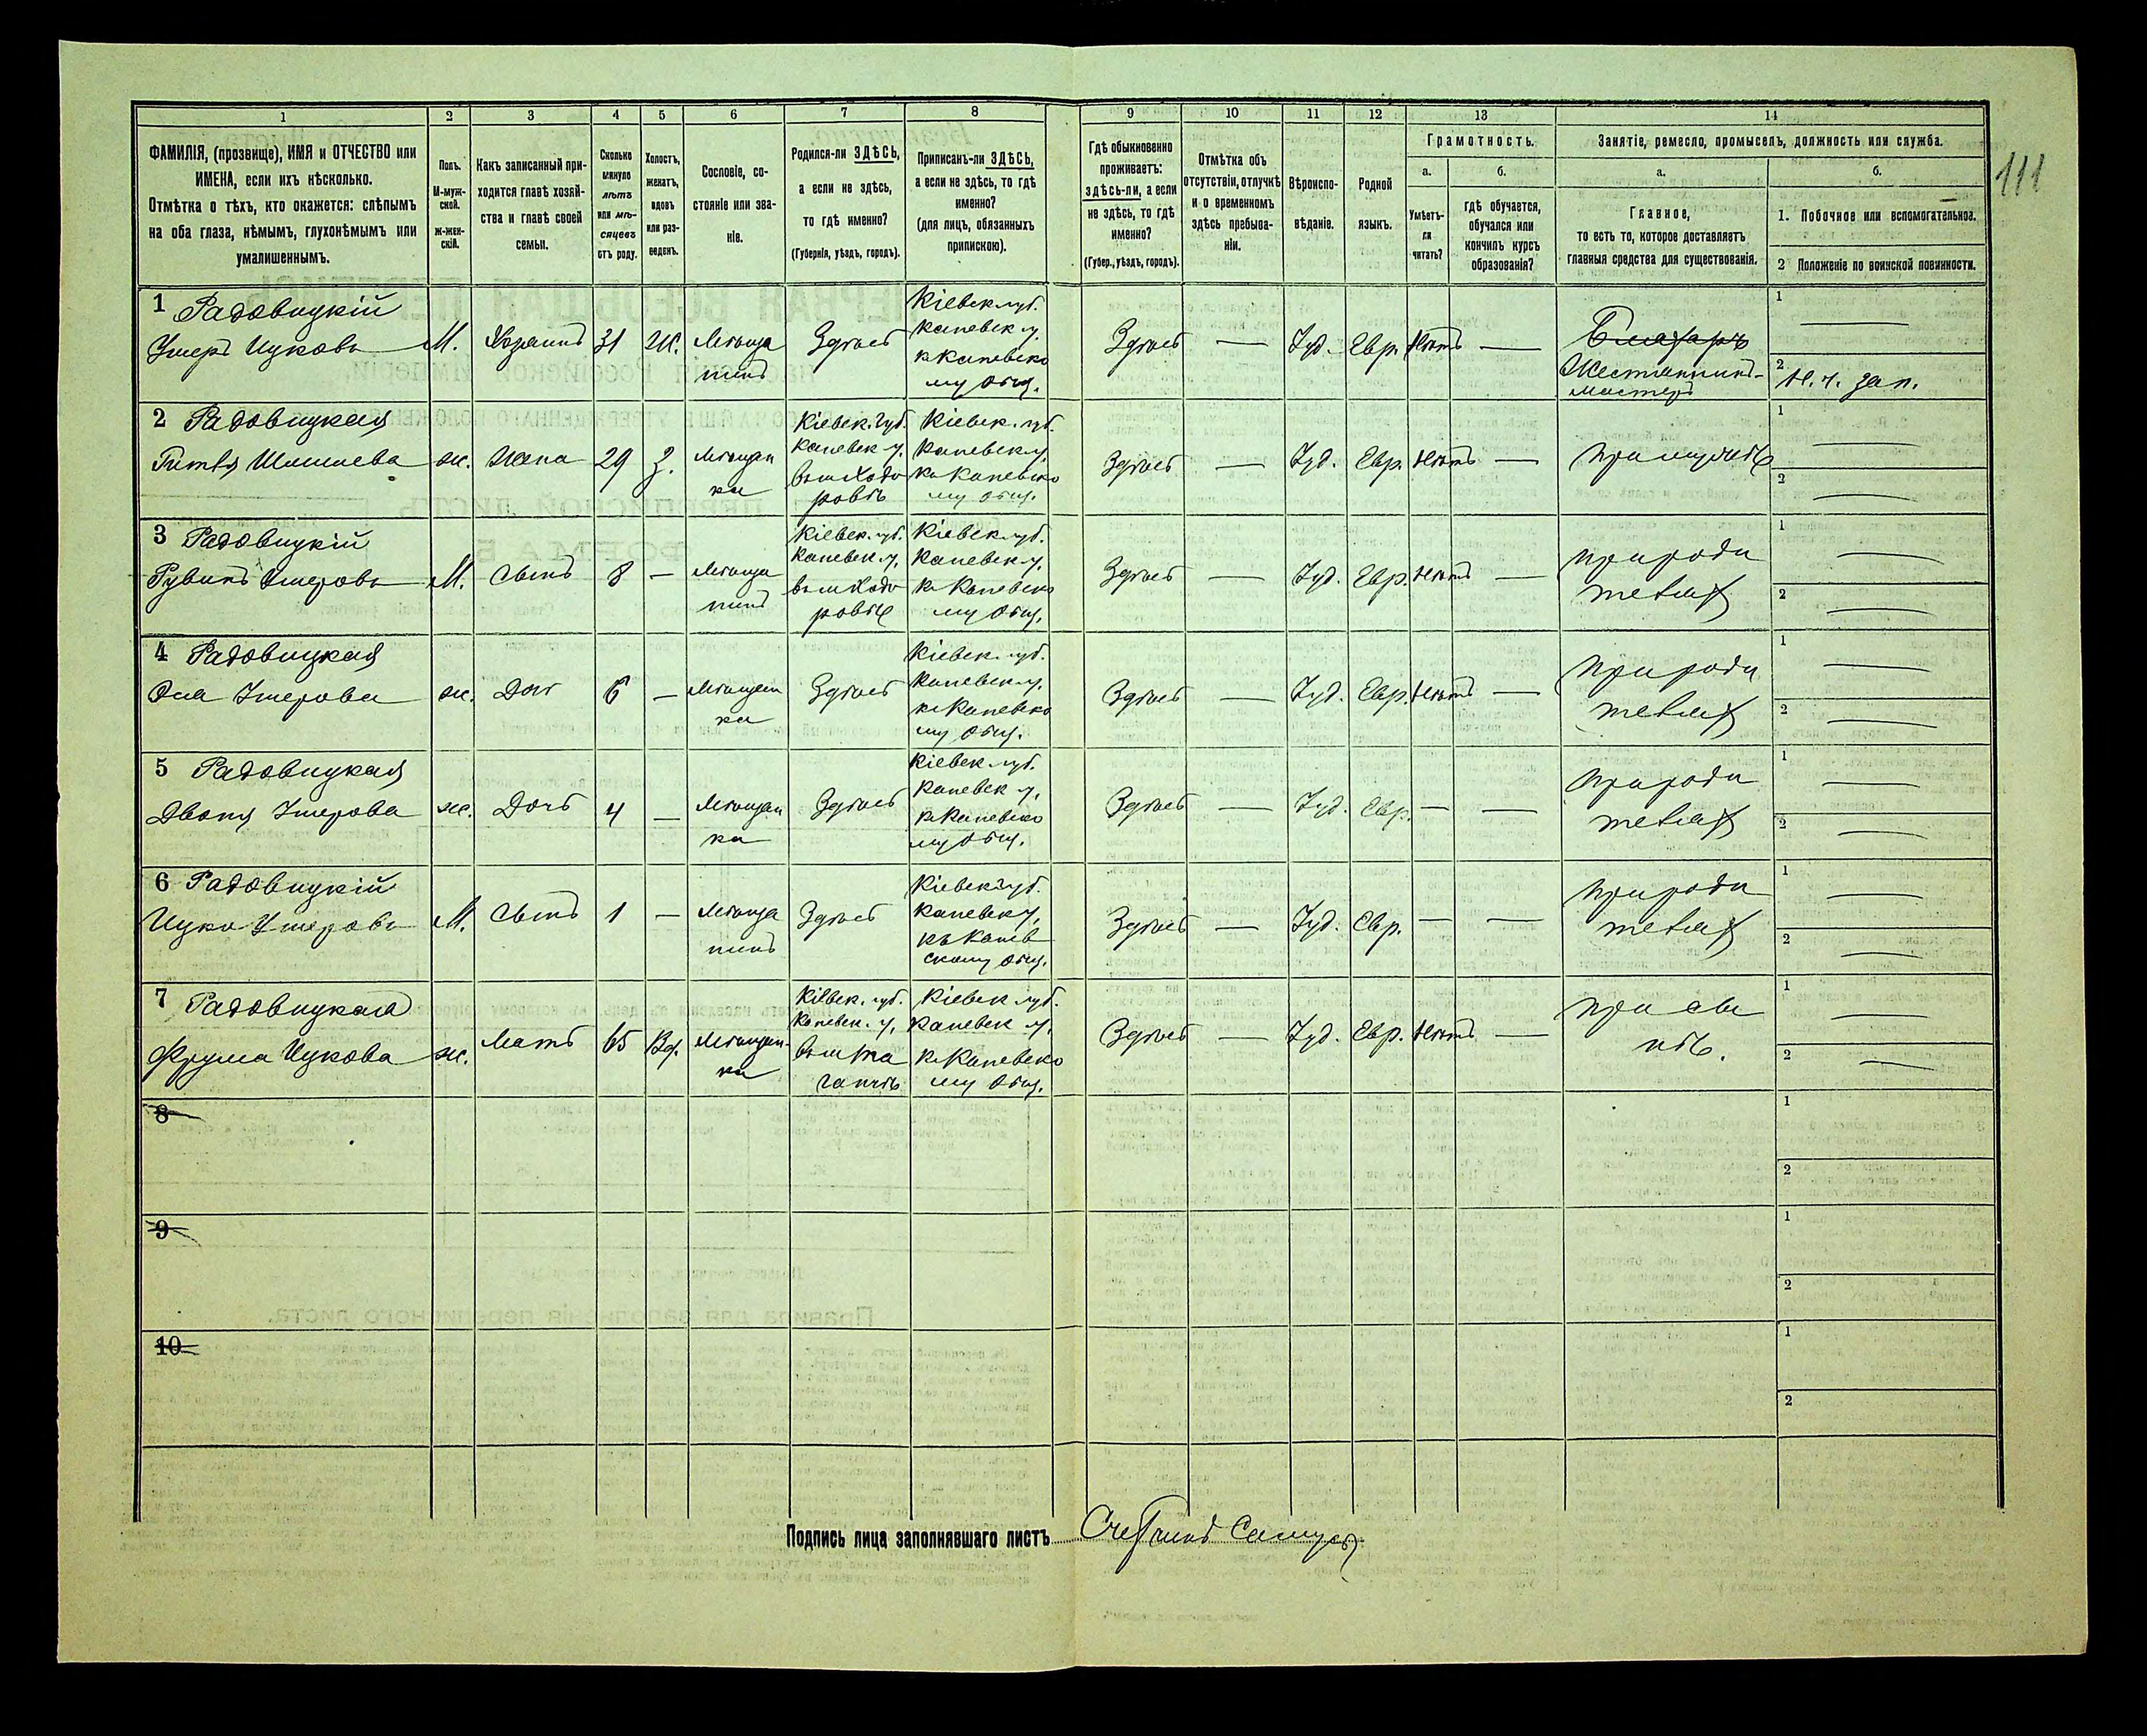 1 2 3 4 5 6 7 8 9 10 11 12 13 14
ФАМИЛІЯ, (прозвище), ИМЯ и ОТЧЕСТВО или
ИМЕНА, если ихъ нѣсколько.
Отмѣтка о тѣхъ, кто окажется: слѣпымъ
на оба глаза, нѣмымъ, глухонѣмымъ или
умалишеннымъ.
Полъ.
М-муж-
ской.
Ж-жен-
скій.
Какъ записанный при-
ходится главѣ хозяй-
ства и главѣ своей
семьи.
Сколько
минуло
лѣтъ
или мѣ-
сяцевъ
отъ роду.
Холостъ,
женатъ,
вдовъ
или раз-
веденъ.
Сословіе, со-
стояніе или зва-
ніе.
Родился-ли ЗДѢСЬ,
а если не здѣсь,
то гдѣ именно?
(Губернія, уѣздъ, городъ).
Приписанъ-ли ЗДѢСЬ,
а если не здѣсь, то гдѣ
именно?
(для лицъ, обязанныхъ
припискою).
Гдѣ обыкновенно
проживаетъ:
здѣсь-ли, а если
не здѣсь, то гдѣ
именно?
(Губер., уѣздъ, городъ).
Отмѣтка объ
отсутствіи, отлучкѣ
и о временномъ
здѣсь пребыва-
ніи.
Вѣроиспо-
вѣданіе.
Родной
языкъ.
Грамотность.
а.
Умѣетъ-
ли
читать?
б.
гдѣ обучается,
обучался или
кончилъ курсъ
образованія?
Занятіе, ремесло, промыселъ, должность или служба.
а.
Главное,
то есть то, которое доставляетъ
главныя средства для существованія.
б.
1. Побочное или вспомогательное.
2 Положеніе по воинской повинности.
111
1 Радовицкій
Умеръ Ицковъ
М.
Хозяинъ
31
Ж.
Мѣща
нинъ
Здѣсь
Кіевск губ.
Каневск у.
к Каневско
му общ.
Здѣсь
—
Іуд.
Евр.
Нѣтъ
—
Жестянникъ-
мастеръ
1
2 Н. ч. зап.
2 Радовицкая
ж.
Жена
29
З.
Мѣщан
ка
Кіевск. губ.
Каневск у.
Кіевск. губ.
Каневск у.
к Каневско
му общ.
Здѣсь
—
Іуд.
Евр.
Нѣтъ
—
При мужѣ
1
2
3 Радовицкій
Рувинъ Умеровъ
М.
Сынъ
8
—
Мѣща
нинъ
Кіевск. губ.
Каневск у.
Кіевск губ.
Каневск у.
к Каневско
му общ.
Здѣсь
—
Іуд.
Евр.
Нѣтъ
—
При роди
теляхъ
1
2
4 Радовицкая
Умерова
ж.
Дочь
6
—
Мѣщан
ка
Здѣсь
Кіевск. губ.
Каневск у.
к Каневско
му общ.
Здѣсь
—
Іуд.
Евр.
Нѣтъ
—
При роди
теляхъ
1
2
5 Радовицкая
Двоня Умерова
ж.
Дочь
4
—
Мѣщан
ка
Здѣсь
Кіевск. губ.
Каневск у.
к Каневско
му общ.
Здѣсь
—
Іуд.
Евр.
—
—
При роди
теляхъ
1
2
6 Радовицкій
Ицко Умеровъ
М.
Сынъ
1
—
Мѣща
нинъ
Здѣсь
Кіевск губ.
Каневск у.
къ Канев
скому общ.
Здѣсь
—
Іуд.
Евр.
—
—
При роди
теляхъ
1
2
7 Радовицкая
Фрума Ицкова
ж.
Мать
65
Вд.
Мѣщан-
ка
Кіевск. губ.
Каневск. у.
Кіевск губ.
Каневск у.
к Каневско
му общ.
Здѣсь
—
Іуд.
Евр.
Нѣтъ
—
При сы
нѣ.
1
2
8
1
2
9
1
2
10
1
2
Подпись лица заполнявшаго листъ